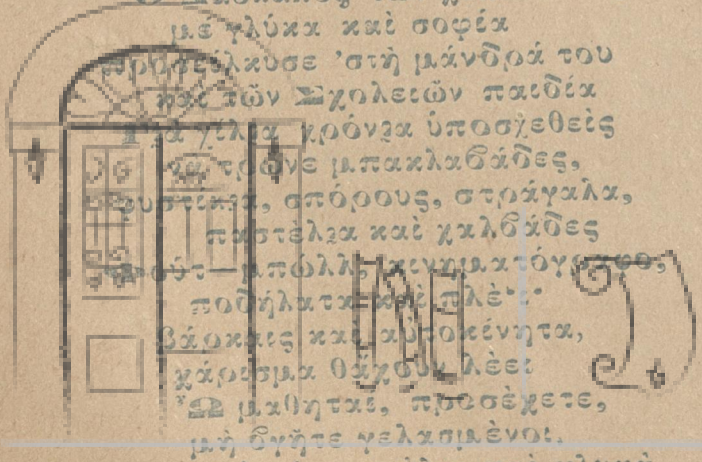 μὲ γλύκα καὶ σοφία
προσείλκυσε 'στὴ μάνδρά του
καὶ τῶν Σχολειῶν παιδία
Γιὰ χίλια χρόνια ὑποσχεθεὶς
νὰ τρῶνε μπακλαβάδες,
φυστίκια, σπόρους, στράγαλα,
παστέλια καὶ χαλβάδες
Φούτ—μπώλλ, κινηματόγραφο,
ποδήλατα καὶ
βάρκαις καὶ αὐτοκίνητα,
χάρισμα θἄχουν λέει
Ὦ μαθηταί, προσέχετε,
μὴ βγῆτε γελασμένοι.